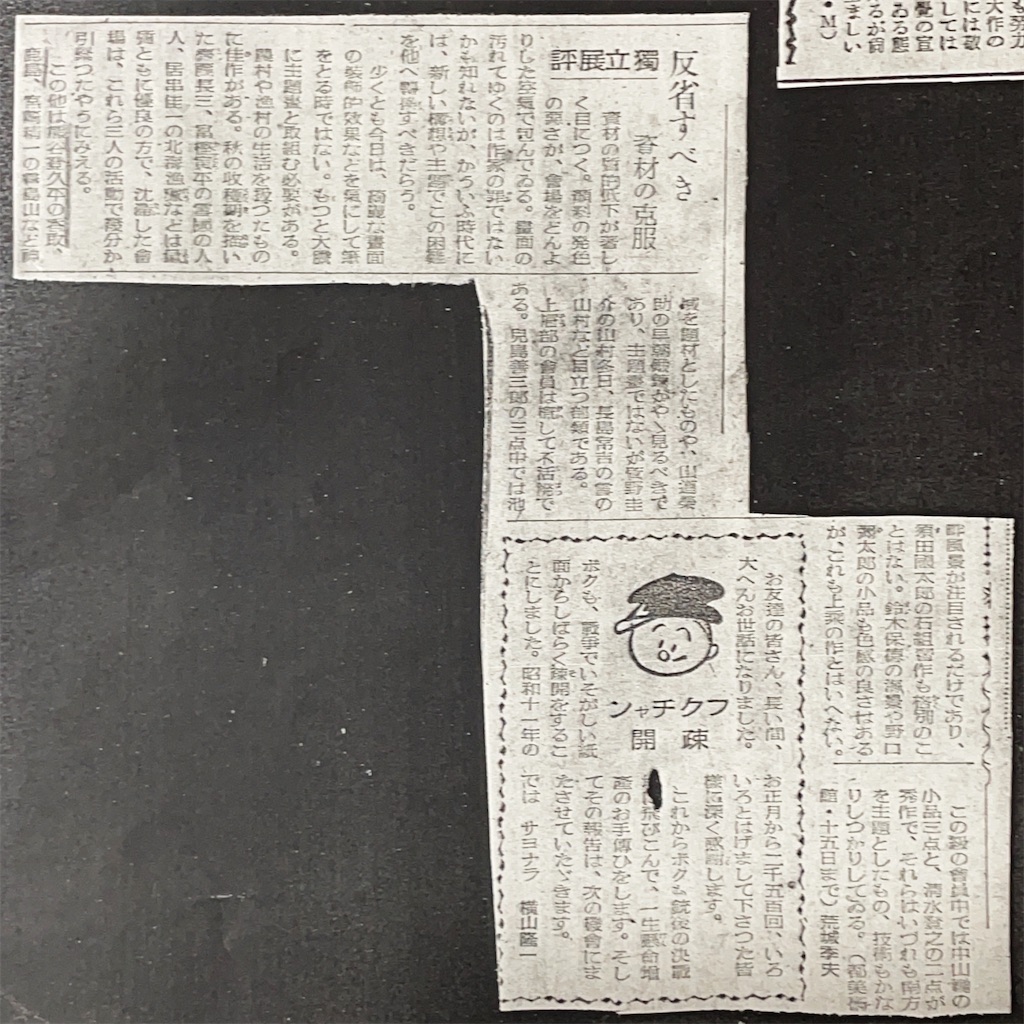 も努力
大作の
には敬
しては
覺の宜
ゐる態
るが飼
ましい
・M)
反省すべき
資材の克服
獨立展評
資材の質的低下が著し
く目につく。顔料の發色
の惡さが、會場をどんよ
りした空氣で包んでゐる。畫面の
汚れてゆくのは作家の罪ではない
かも知れないが、かういふ時代に
は、新しい構想や主題でこの困難
を他へ轉換すべきだらう。
少くとも今日は、綺麗な畫面
の裝飾的效果などを氣にして筆
をとる時ではない。もつと大膽
に主題畫と取組む必要がある。
農村や漁村の生活を扱つたもの
に佳作がある。秋の收穫期を描い
た
長三、
の雪國の人
人、居串佳一の北海漁夫などは最
強ともに優良の方で、沈滯した會
場は、これら三人の活動で幾分か
引緊つたやうにみえる。
この他は熊谷登久平の
鹿島、宮崎精一の霧島山など神
域を題材としたものや、山道榮
助の
鍛鍊がやゝ見るべきで
あり、主題畫ではないが菅野圭
介の山村冬日、長島常吉の雪の
山村など目立つ部類である。
上層部の會員は概して不活潑で
ある。兒島善三郎の三点中では池
畔風景が注目されるだけであり、
須田國太郎の石組習作も格別のこ
とはない。鈴木保德の漁婦や野口
彌太郎の小品も色感の良さはある
が、これも上乘の作とはいへない。
この級の會員中では中山巍の
小品三点と、淸水登之の二点が
秀作で、それらはいづれも南方
を主題としたもの、技術もかな
りしつかりしてゐる。(都美術
館・十五日まで)荒城季夫
フクチャン
疎開
お友達の皆さん、長い間、
大へんお世話になりました。
ボクも、戰爭でいそがしい紙
面からしばらく疎開をするこ
とにしました。昭和十一年の
お正月から二千五百回、いろ
いろとはげまして下さつた皆
樣に深く感謝します。
これからボクも銃後の決戰
に飛びこんで、一生懸命增
產のお手傳ひをします。そし
てその報告は、次の機會にま
たさせていたゞきます。
では サヨナラ 橫山隆一